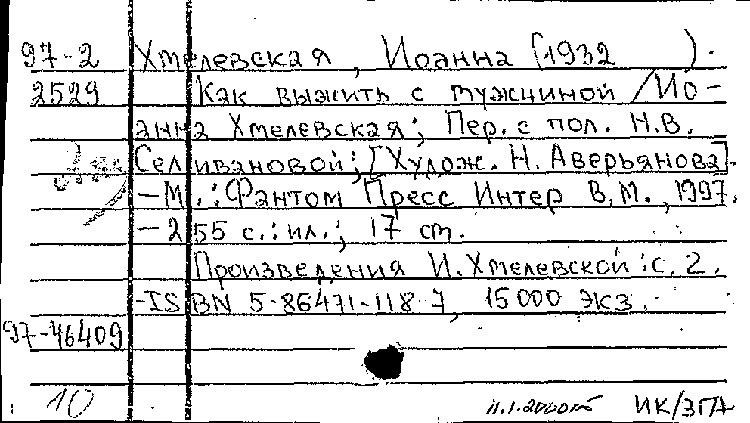 97-2 Хмелевская, Иоанна (1932    ).
2529 Как выжить с мужчиной /Ио-
анна Хмелевская; Пер. с пол. Н.В.
Селивановой; [Худож. Н. Аверьянова].
-М.: Фантом Пресс Интер В.М., 1997.
- 255 с.: ил.; 17 см.
Произведения И. Хмелевской: с. 2.
-ISBN 5-86471-118-7, 15000 экз.
97-46409
10 ИК/ЗГА